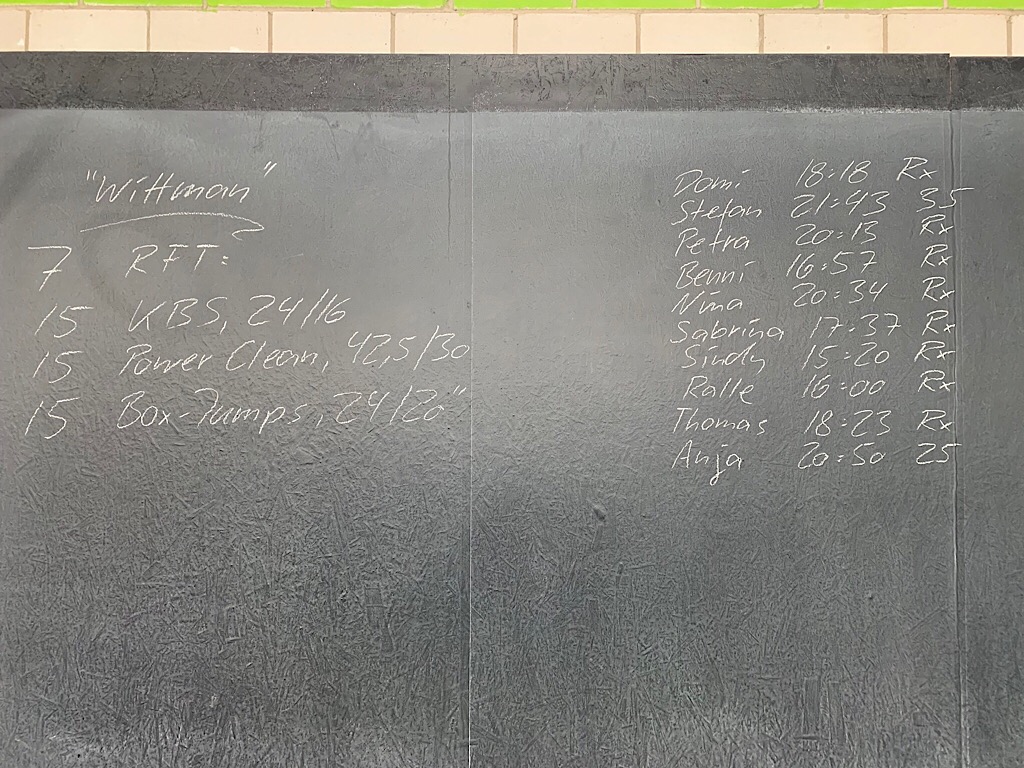 "Wittman"
7 RFT:
15 KBS, 24/16
15 Power Clean, 42,5/30
15 Box-Jumps, 24/20"
Domi 18:18 Rx
Stefan 21:43 35
Petra 20:13 Rx
Benni 16:57 Rx
Nina 20:34 Rx
Sabrina 17:37 Rx
Sindy 15:20 Rx
Ralle 16:00 Rx
Thomas 18:23 Rx
Anja 20:50 25